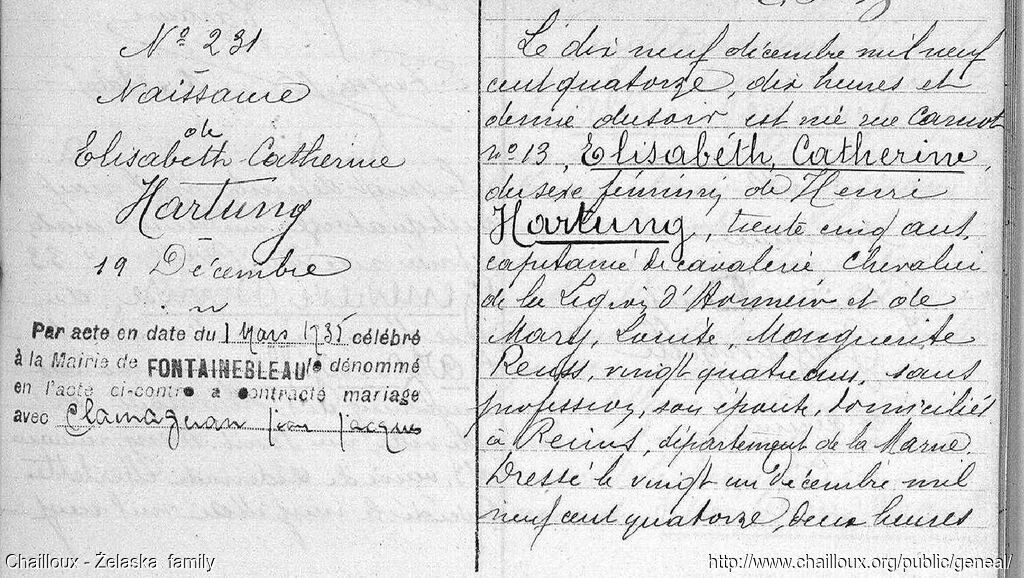 Nº 231
Naissance
de
Elisabeth Catherine
Hartung
19 Décembre
Par acte en date du 1 Mars 1935 célébré
à la Mairie de FONTAINEBLEAU le dénommé
en l'acte ci-contre a contracté mariage
avec Clamageran Jean Jacques
Le dix neuf décembre mil neuf
cent quatorze, dix heures et
demie du soir est née rue Carnot
nº 13, Elisabeth, Catherine,
du sexe féminin, de Henri
Hartung, trente cinq ans,
capitaine de cavalerie Chevalier
de la Légion d'Honneur et de
Mary, Louise, Marguerite
vingt quatre ans, sans
profession, son épouse, domiciliés
à Reims, département de la Marne.
Dressé le vingt un décembre mil
neuf cent quatorze, deux heures
Chailloux - Żelaska family
http://www.chailloux.org/public/geneal/